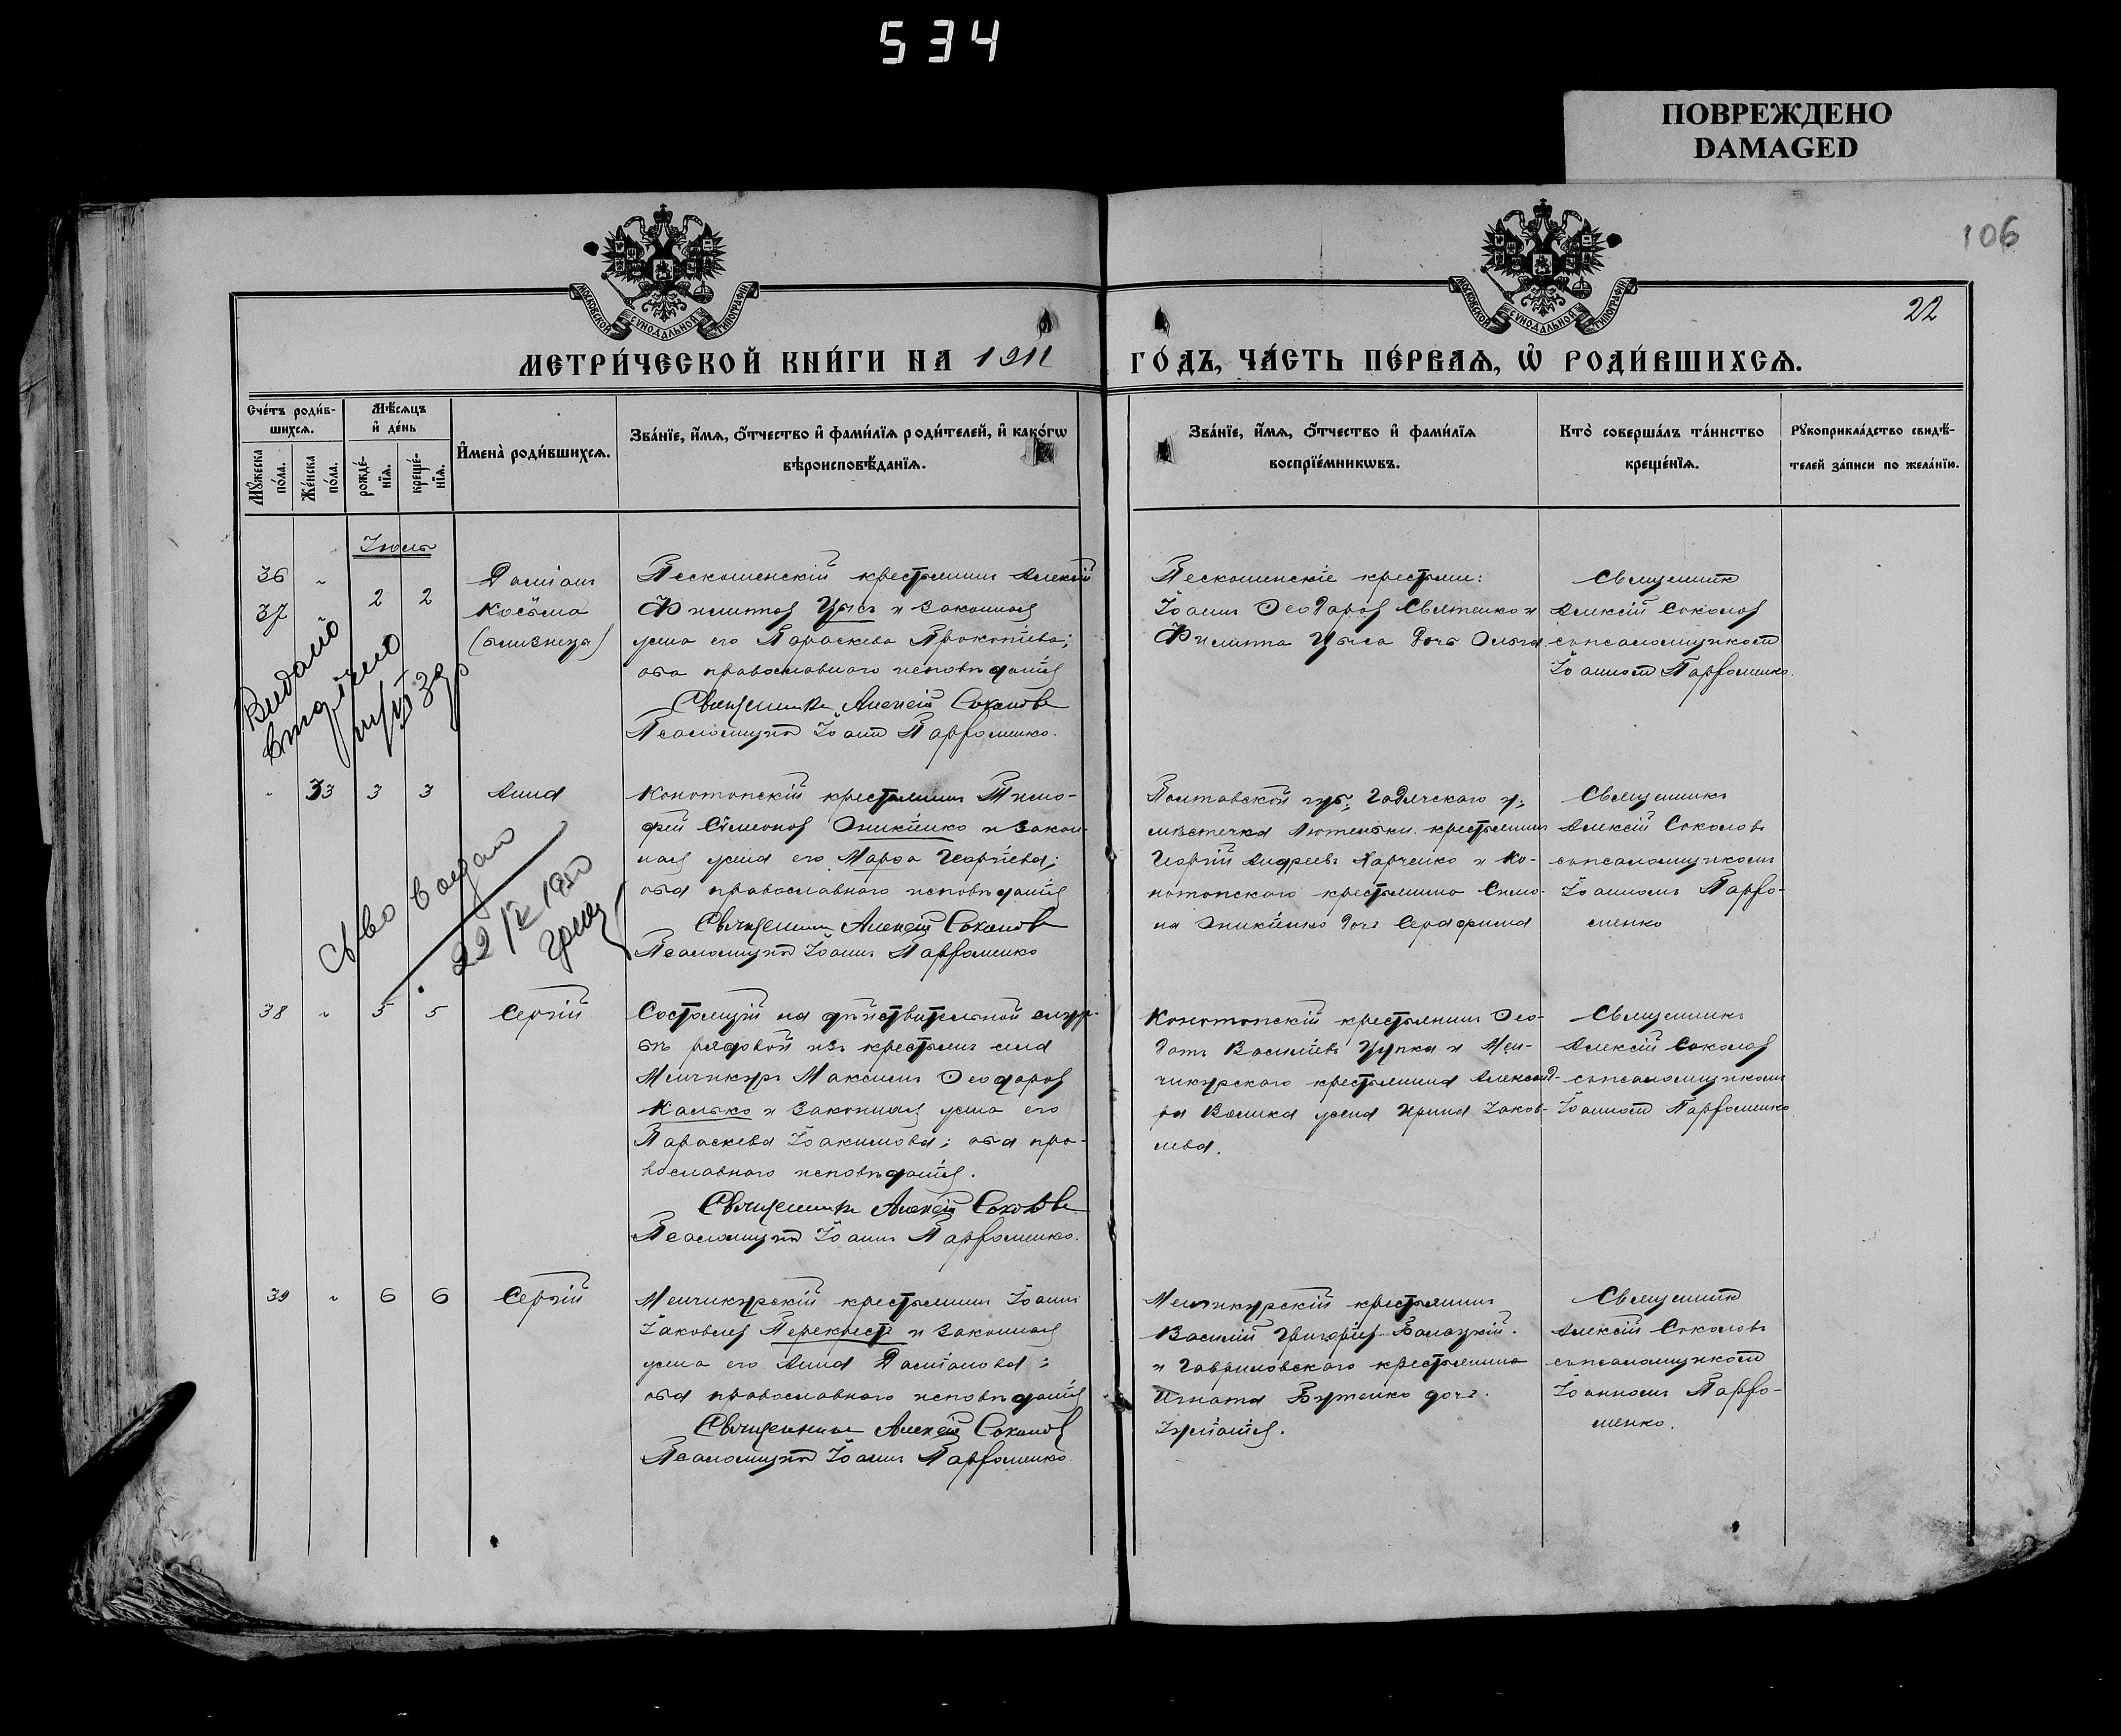 534
ПОВРЕЖДЕНО
DAMAGED
106
22
МОСКОВСКОЙ СУНОДАЛЬНОЙ ТИПОГРАФІИ
МОСКОВСКОЙ СУНОДАЛЬНОЙ ТИПОГРАФІИ
МЕТРИ́ЧЕСКОЙ КНИ́ГИ НА 1911 ГО́ДЪ, ЧА́СТЬ ПЕ́РВАѦ, Ѡ҆ РОДИ́ВШИХСѦ.
Сче́тъ роди́в-
шихсѧ.
Мѣ́сѧцъ
и҆ де́нь
Мꙋ́жеска по́ла.
Же́нска по́ла.
рожде́-
нїѧ.
креще́-
нїѧ.
И҆мена̀ роди́вшихсѧ.
Зва́нїе, и҆́мѧ, ѻ҆́тчество и҆ фами́лїѧ роди́телей, и҆ како́гѡ
вѣроисповѣ́данїѧ.
Зва́нїе, и҆́мѧ, ѻ҆́тчество и҆ фами́лїѧ
воспрїе́мникѡвъ.
Кто̀ соверша́лъ та́инство
креще́нїѧ.
Рꙋкоприкла́дство свидѣ́-
телей за́писи по жела́нїю.
Іюль
36 „ 2 2
37
Даміанъ
Косьма
(близнецы)
Пескошенскій крестьянинъ Алексѣй
Филиповъ Цысъ и законная
жена его Параскева Прокопіева;
оба православнаго исповѣданія
Священникъ Алексій Соколовъ
Псаломщикъ Іоаннъ Парфоменко.
Пескошинскіе крестьяне:
Іоаннъ Ѳеодоровъ Святенко и
Филиппа Цыса дочь Ольга.
Священникъ
Алексій Соколовъ
съ псаломщикомъ
Іоанномъ Парфоменко.
„ 33 3 3
Анна
Конотопскій крестьянинъ Тимо-
фей Сѵмеоновъ Оникіенко и закон-
ная жена его Марфа Георгіева;
оба православнаго исповѣданія
Священникъ Алексій Соколовъ
Псаломщикъ Іоаннъ Парфоменко
Полтавской губ., Гадячскаго у.,
мѣстечка Лютеньки крестьянинъ
Георгій Андреевъ Харченко и Ко-
нотопскаго крестьянина Симо-
на Оникіенко дочь Серафима
Священникъ
Алексій Соколовъ
съ псаломщикомъ
Іоанномъ Парфо-
менко
22/2 1950
38 „ 5 5
Сергій
Состоящій на дѣйствительной служ-
бѣ рядовой изъ крестьянъ села
Менчикуръ Максимъ Ѳеодоровъ
Калько и законная жена его
Параскева Іоакимова; оба пра-
вославнаго исповѣданія.
Священникъ Алексій Соколовъ
Псаломщикъ Іоаннъ Парфоменко.
Конотопскій крестьянинъ Ѳео-
дотъ Василіевъ Цупка и Мен-
чикурскаго крестьянина Александ-
ра Волика жена Ирина Іаков-
лева.
Священникъ
Алексій Соколовъ
съ псаломщикомъ
Іоанномъ Парфоменко
39 „ 6 6
Сергій
Менчикурскій крестьянинъ Іоаннъ
Іаковлевъ Перекрестъ и законная
жена его Анна Даміанова;
оба православнаго исповѣданія
Священникъ Алексій Соколовъ
Псаломщикъ Іоаннъ Парфоменко.
Менчикурскій крестьянинъ
Василій Григорьевъ Балацкій.
и Гавриловскаго крестьянина
Игната Бутенко дочь.
Іуліанія.
Священникъ
Алексій Соколовъ
съ псаломщикомъ
Іоанномъ Парфо-
менко.